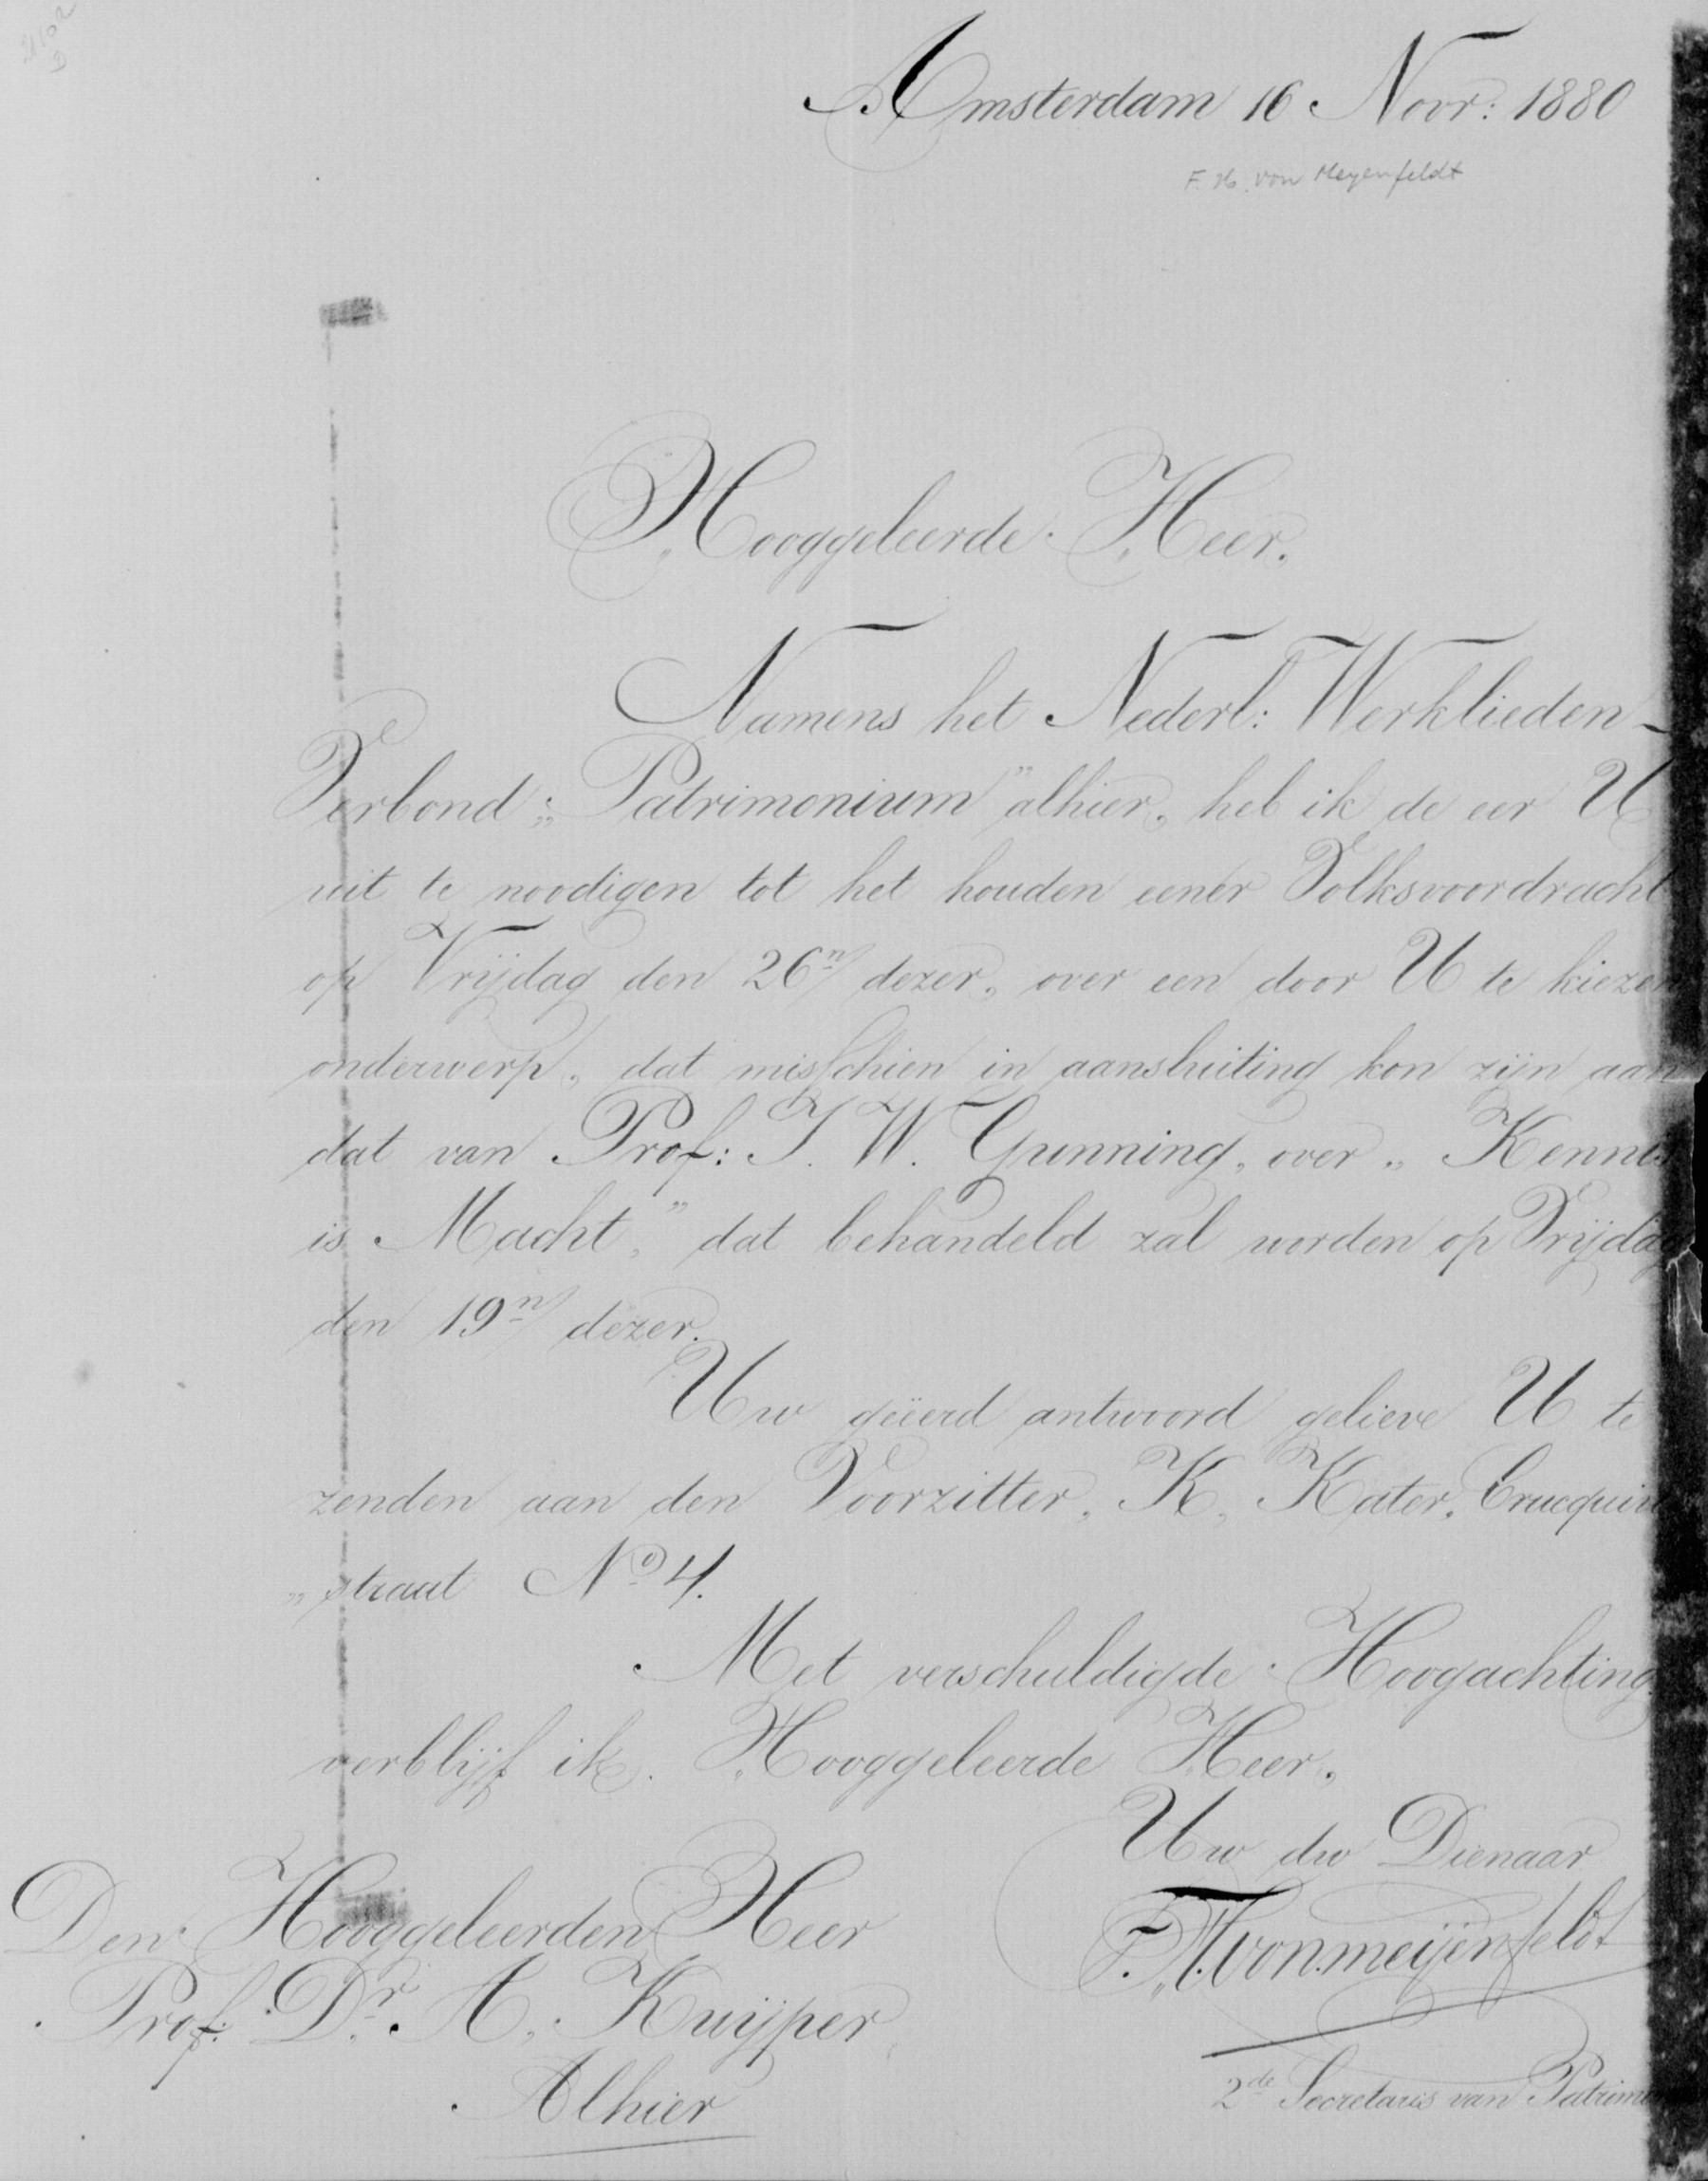 2102
D
Amsterdam 16 Novr: 1880
F. H. von Meyenfeldt
Hooggeleerde Heer.
Namens het Nederl: Werklieden-
Verbond „Patrimonium” alhier, heb ik de eer U
uit te noodigen tot het houden eener Volksvoordracht
op Vrijdag den 26n dezer, over een door U te kiezen
onderwerp, dat misschien in aansluiting kon zijn aan
dat van Prof: J. W. Gunning, over „Kennis
is Macht,” dat behandeld zal worden op Vrijdag
den 19n dezer.
Uw geëerd antwoord gelieve U te
zenden aan den Voorzitter, K. Kater, Crucquius
„straat No 4.
Met verschuldigde Hoogachting
verblijf ik. Hooggeleerde Heer,
Uw dw Dienaar
F. H. von meijenfeldt
2de Secretaris van Patrim
Den Hooggeleerden Heer
Prof: Dr. A. Kuijper
Alhier